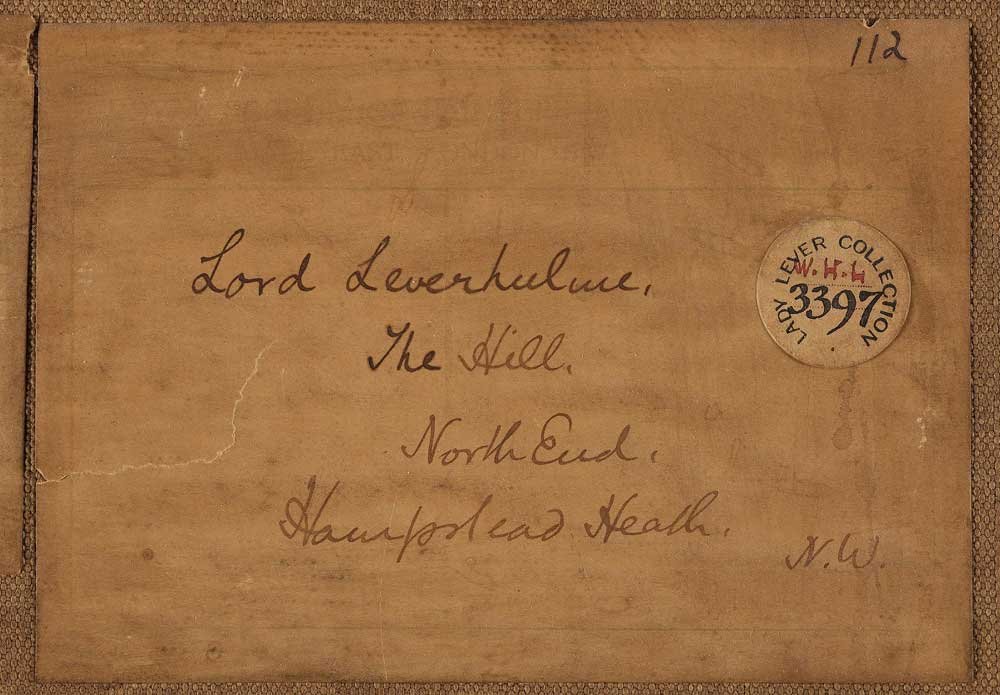 112
Lord Leverhulme,
The Hill,
North End,
Hampstead Heath,
N.W.
LADY LEVER COLLECTION
W.H.L
3397